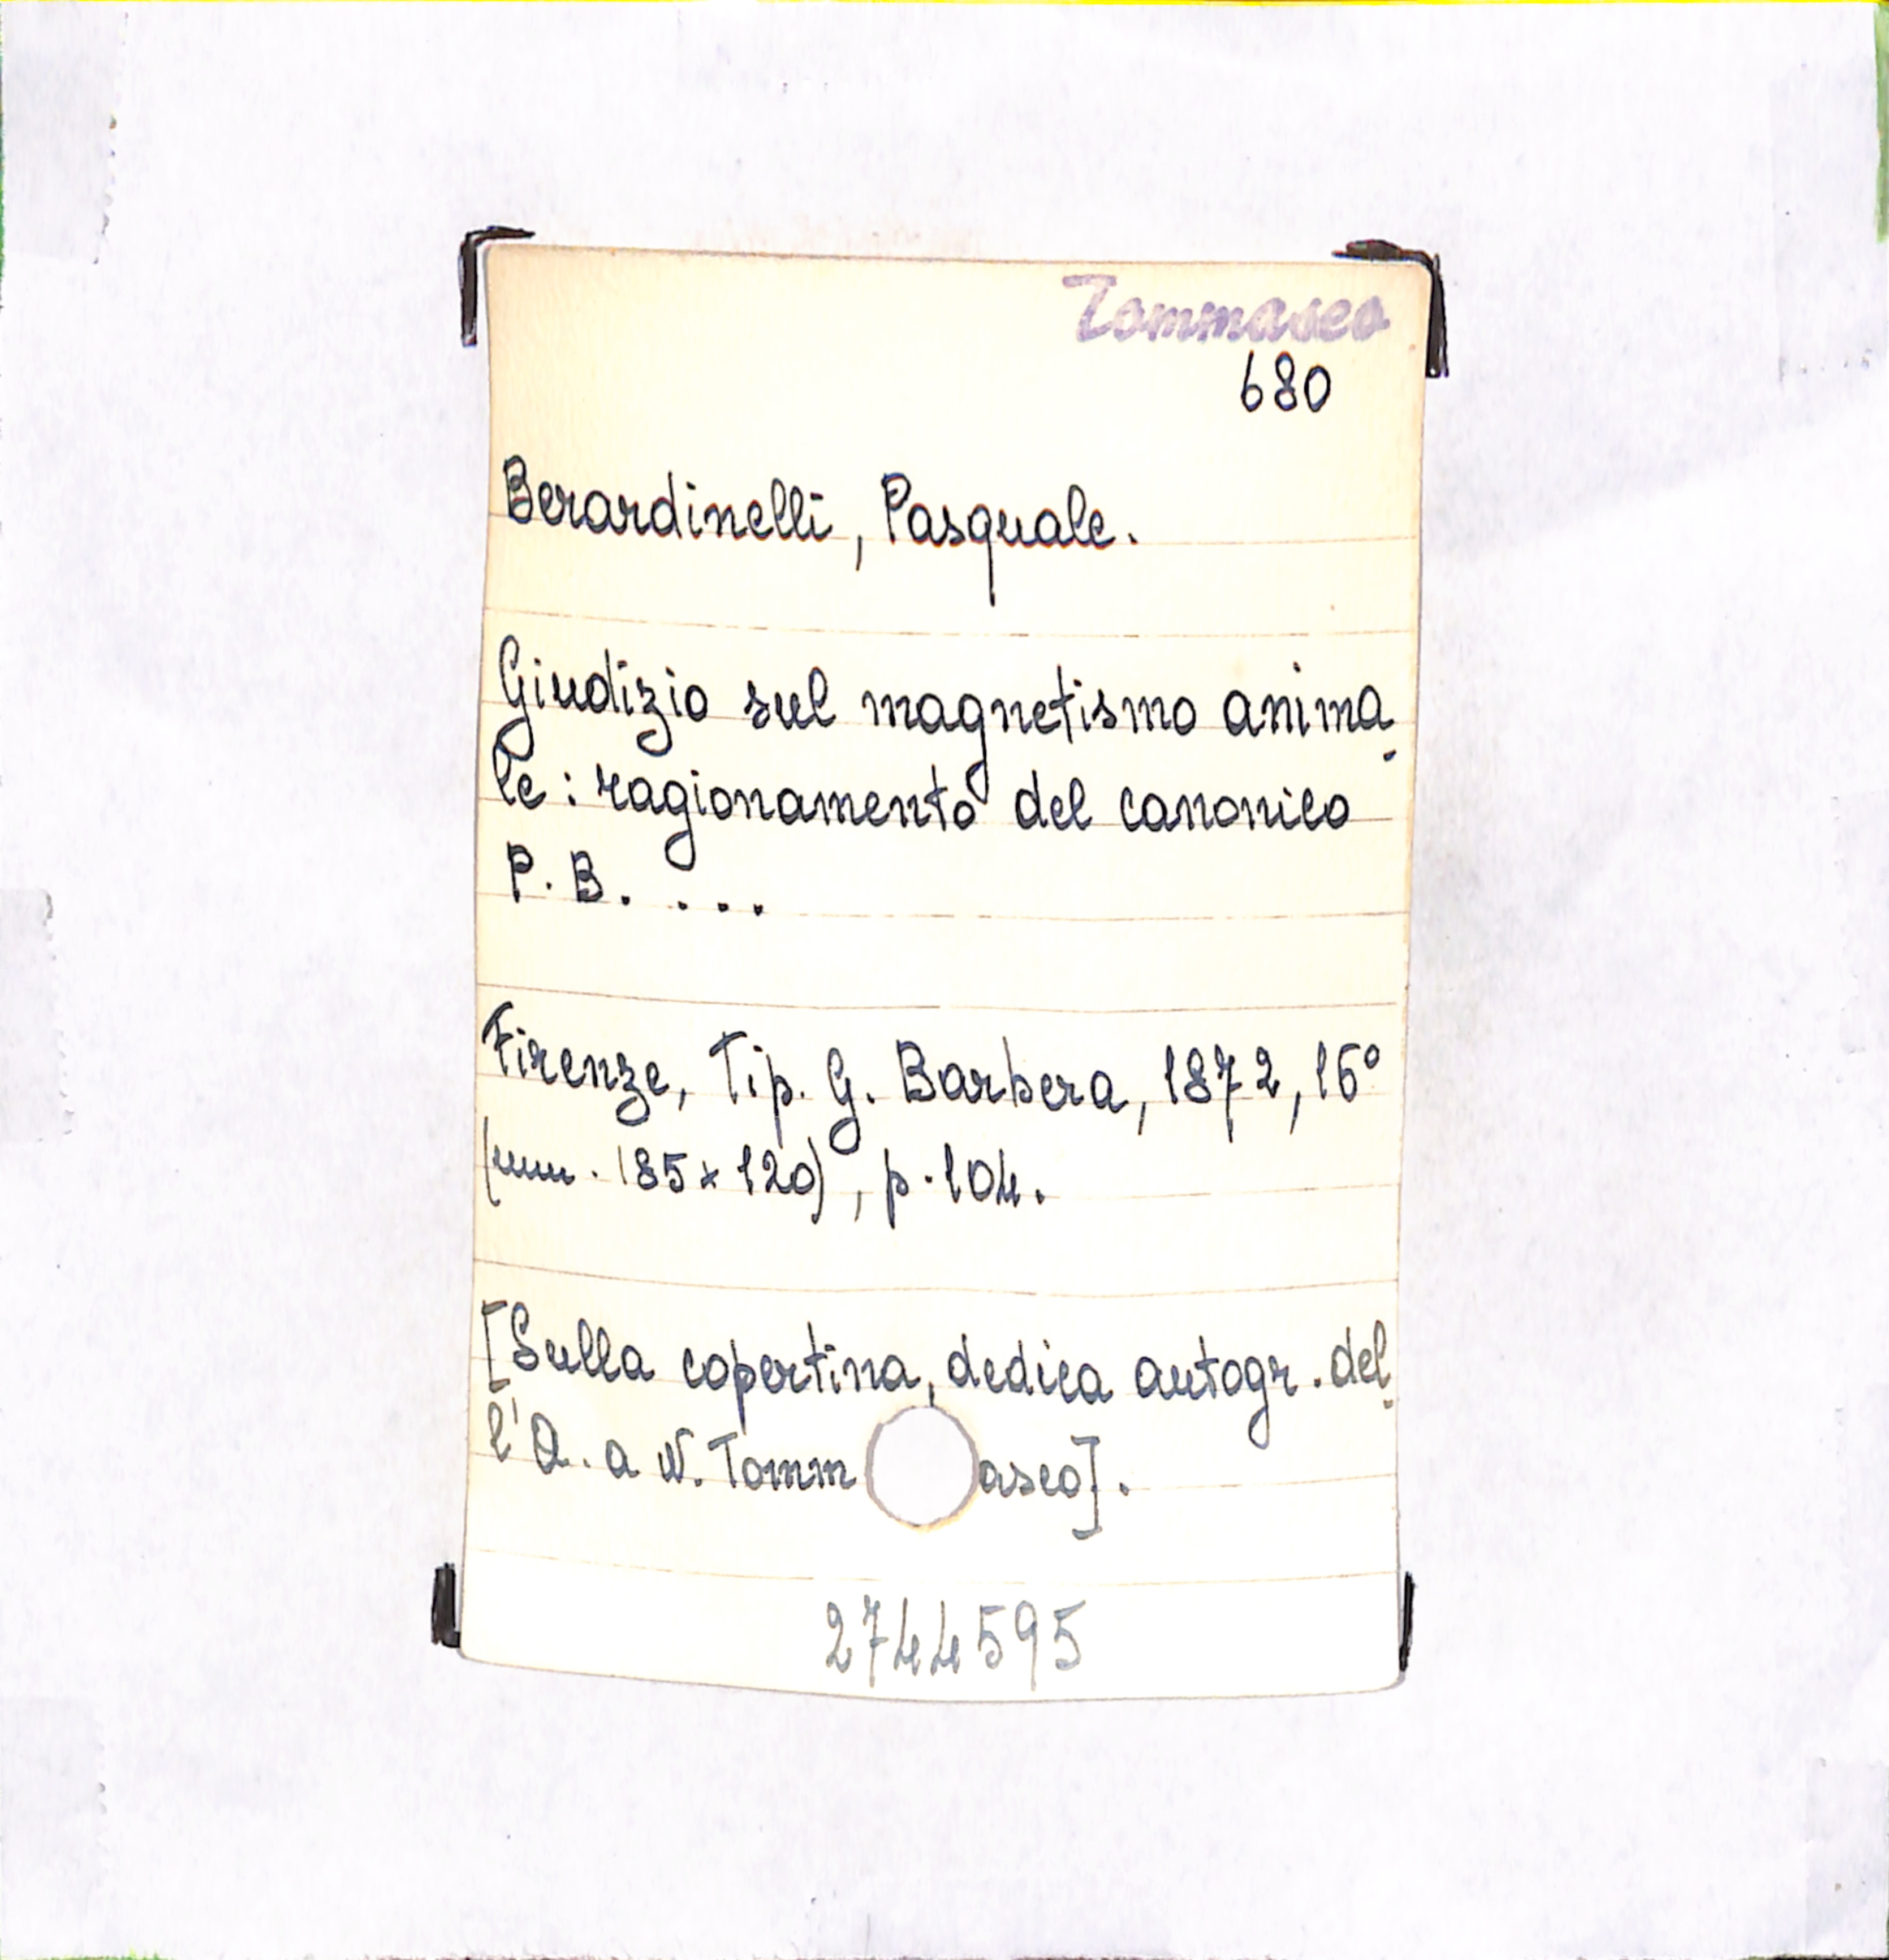 Tommaseo
680
Berardinelli, Pasquale.
Giudizio sul magnetismo anima-
le: ragionamento del canonico
P. B. ...
Firenze, Tip. G. Barbera, 1872, 16°
(mm. 185x120), p. 104.
[Sulla copertina, dedica autogr. del-
l'A. a N. Tommaseo].
2744595